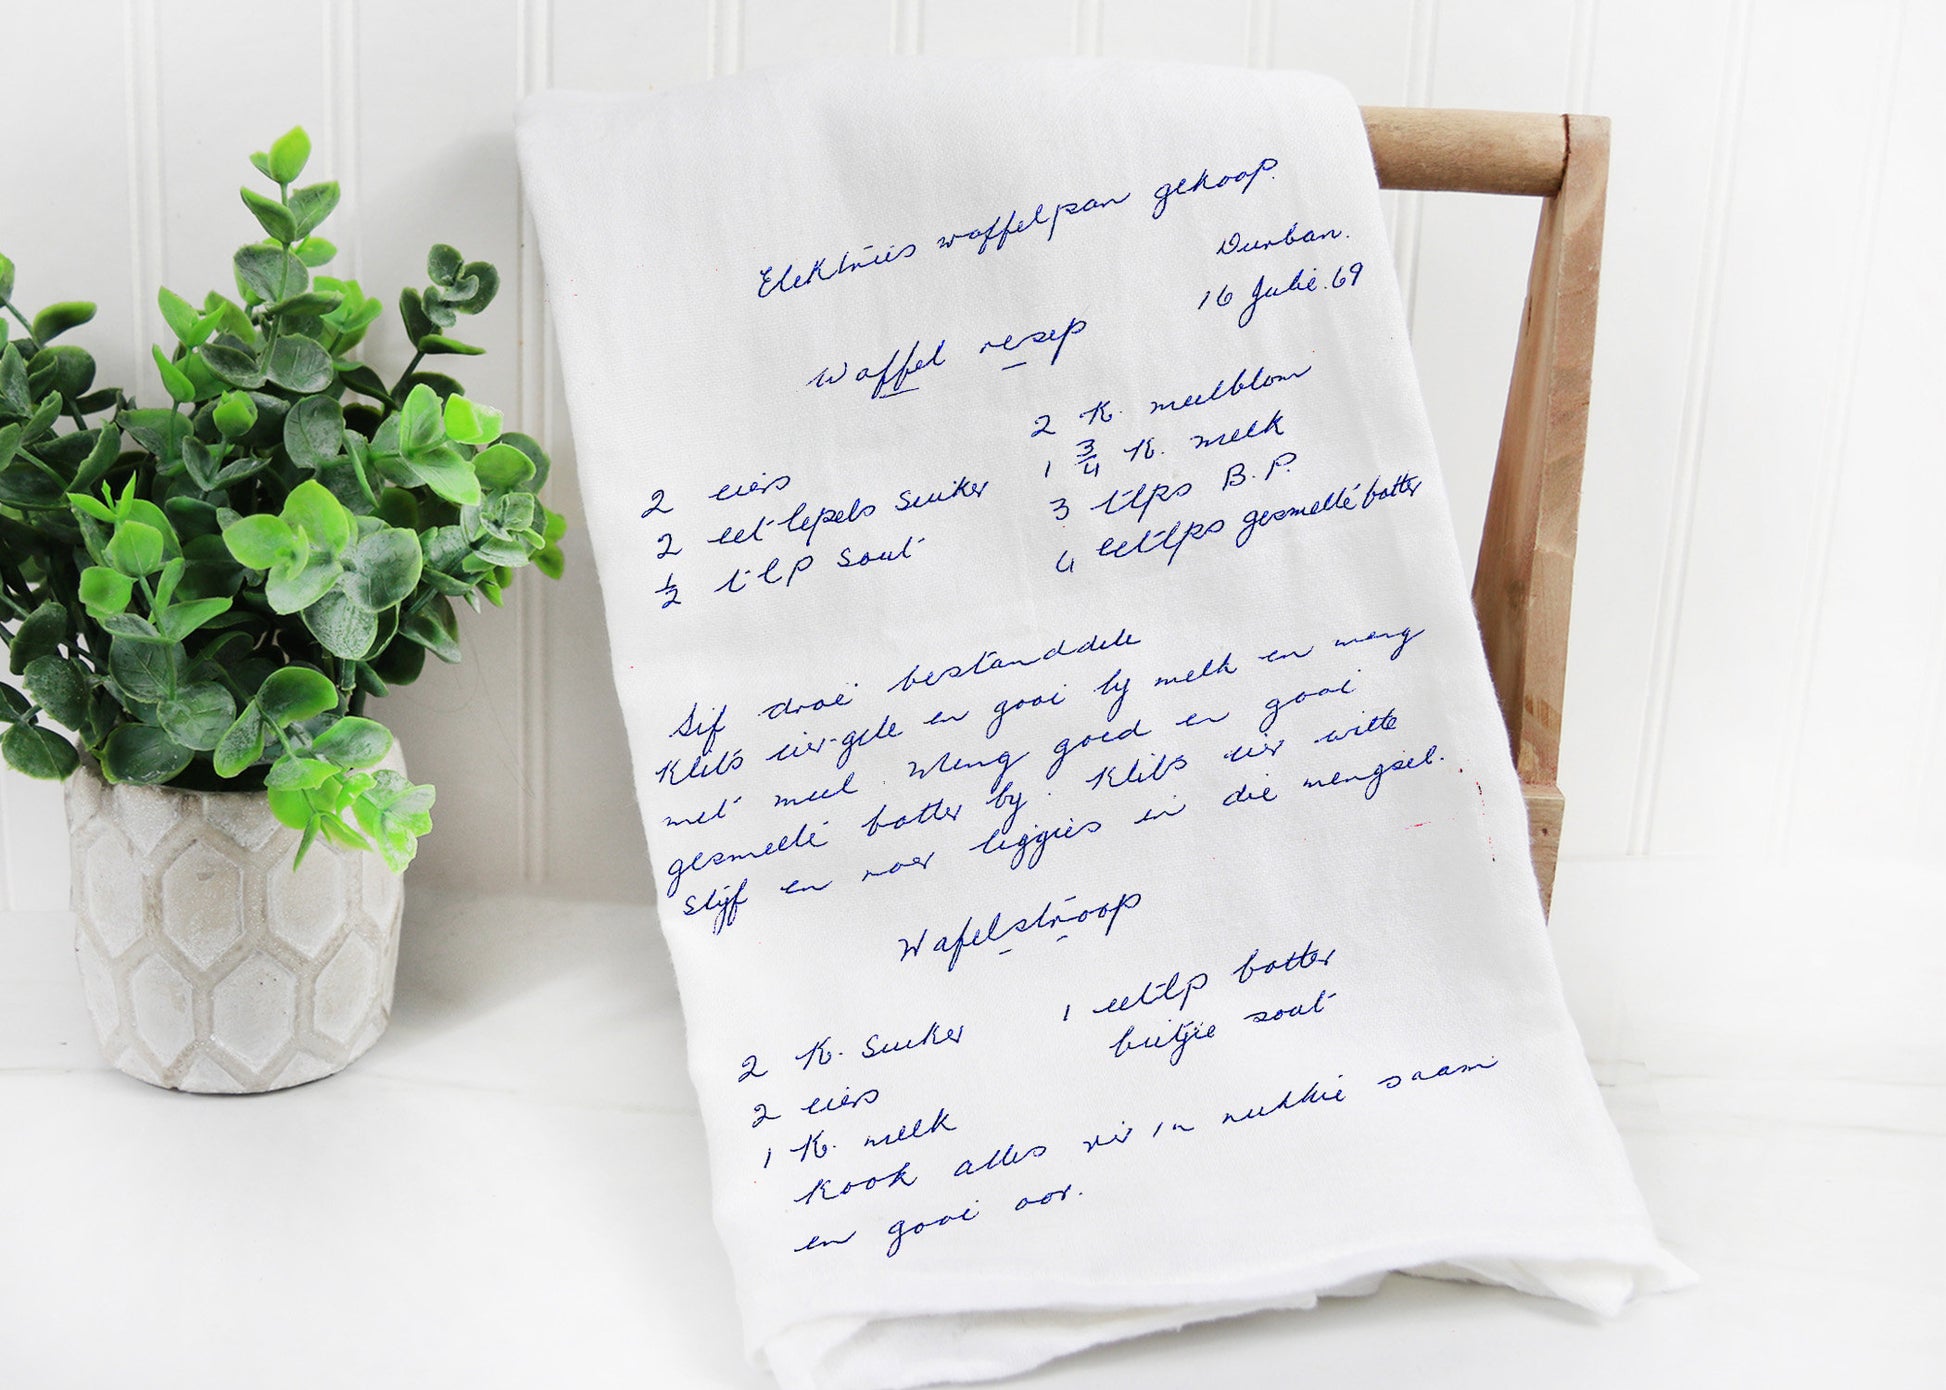 Elektries waffelpan gekoop.
Durban.
16 Julie.69
Waffel resep
2 eiers
2 eet-lepels Suiker
½ tlp Sout
2 K. meelblom
1 ¾ K. melk
3 tlps B.P.
4 eetlps gesmelte botter
Sif droë bestanddele
Klits eier-gele en gooi by melk en meng
met meel. Meng goed en gooi
gesmelte botter by. Klits eier witte
Styf en roer liggies in die mengsel.
Wafelstroop
2 K. Suiker
2 eiers
1 K. melk
1 eetlp botter
bietjie sout
Kook alles vir 'n rukkie saam
en gooi oor.